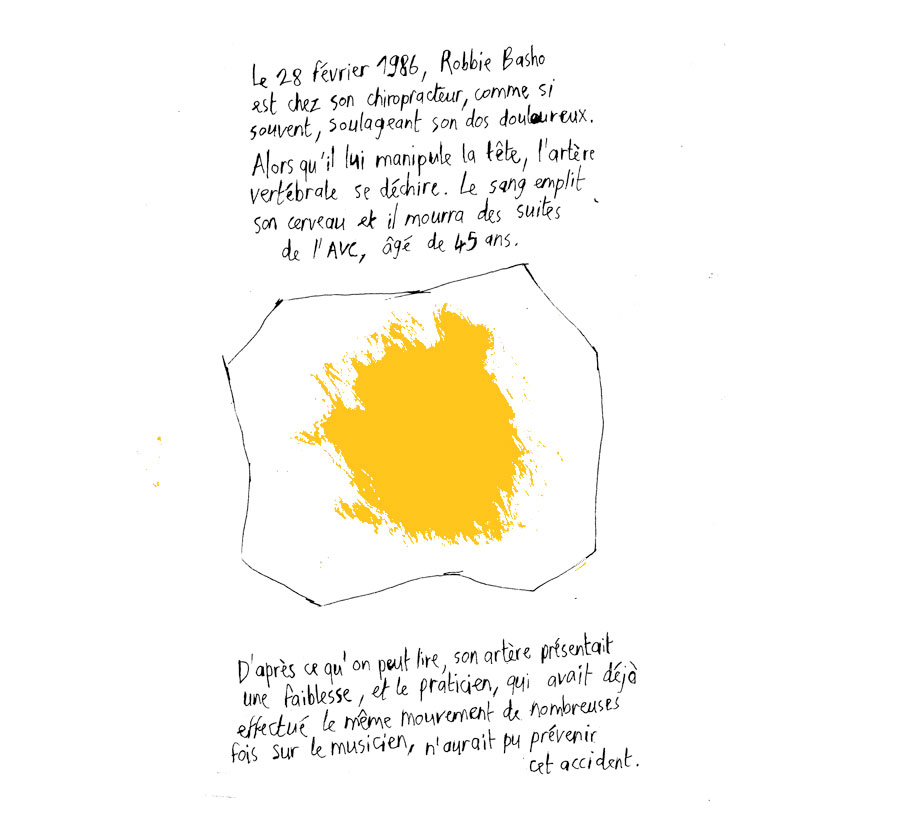 Le 28 février 1986, Robbie Basho
est chez son chiropracteur, comme si
souvent, soulageant son dos douloureux.
Alors qu'il lui manipule la tête, l'artère
vertébrale se déchire. Le sang emplit
son cerveau et il mourra des suites
de l'AVC, âgé de 45 ans.
D'après ce qu'on peut lire, son artère présentait
une faiblesse, et le praticien, qui avait déjà
effectué le même mouvement de nombreuses
fois sur le musicien, n'aurait pu prévenir
cet accident.